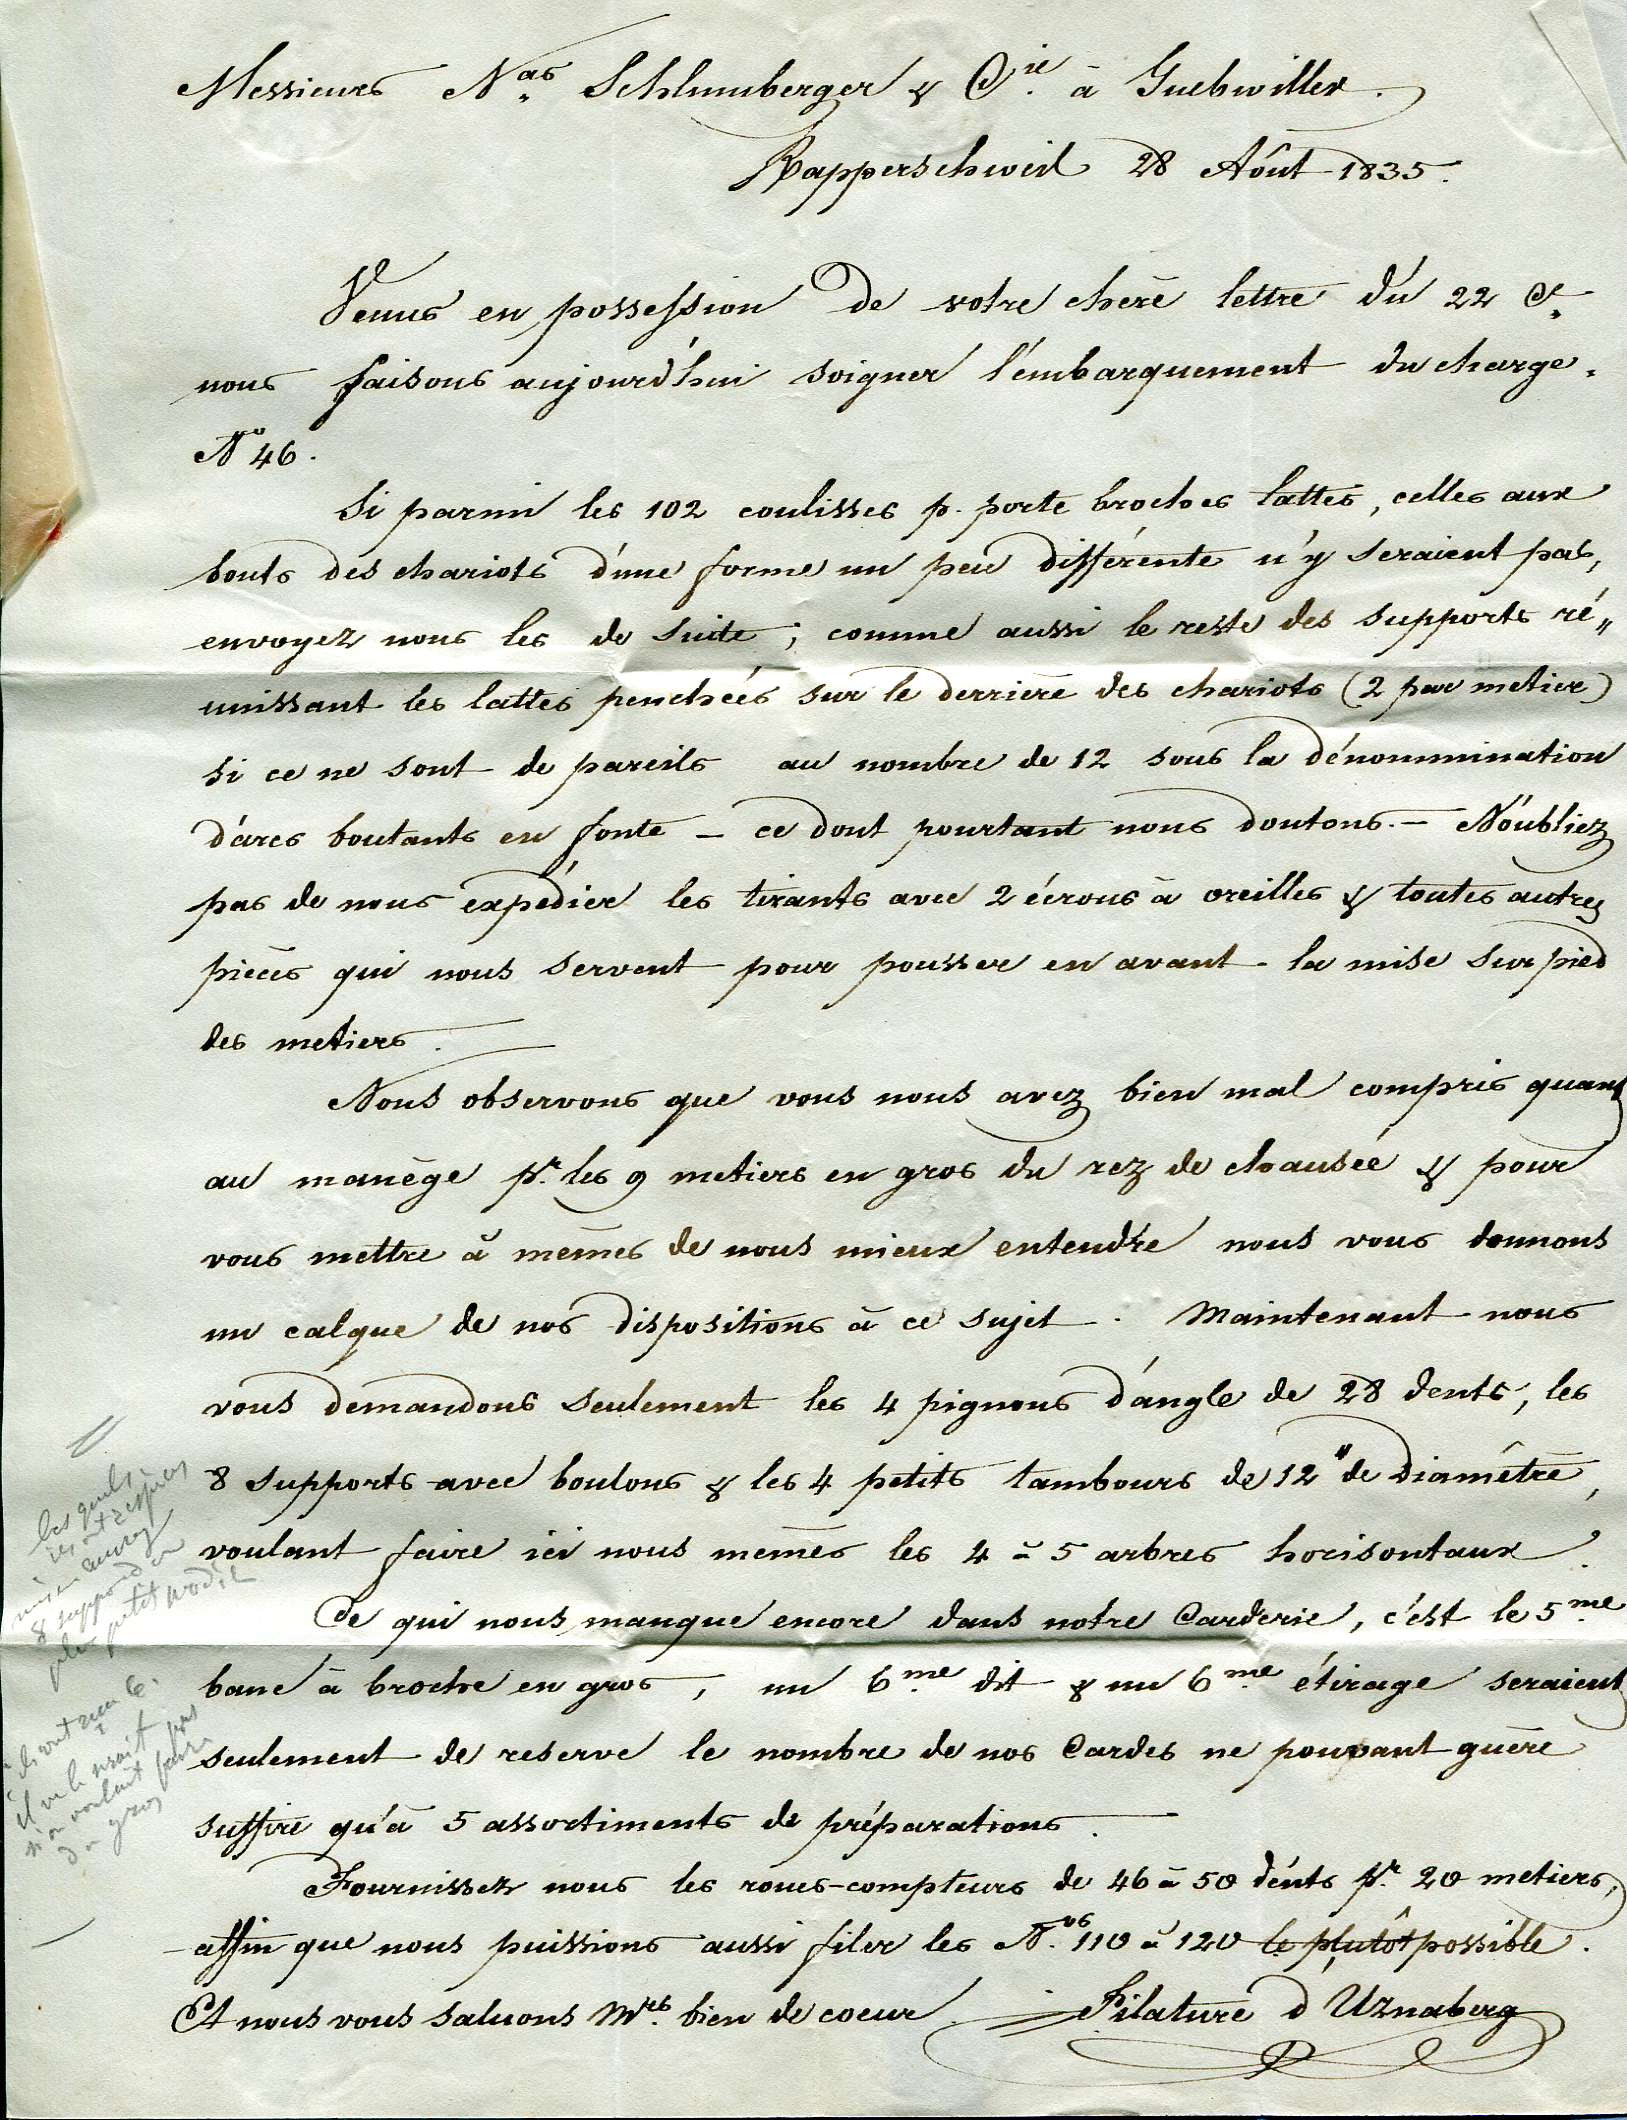 Messieurs Nas Schlumberger & Cie. à Guebwiller.
Rapperschweil 28 Aôut 1835.
Venus en possession de votre chère lettre du 22 Ct.
nous faisons aujourd'hui soigner l'émbarquement du charge.
No 46.
Si parmi les 102 coulisses p. porte broches lattes, celles aux
bouts des chariots d'une forme un peu différente n'y seraient pas,
envoyez nous les de suite; comme aussi le reste des supports ré„
unissant les lattes penchées sur le derrière des chariots (2 par metier)
si ce ne sont de pareils au nombre de 12 sous la dénommination
d'arcs boutants en fonte – ce dont pourtant nous doutons. – N'oubliez
pas de nous expédier les tirants avec 2 écrous à oreilles & toutes autres
pièces qui nous servent pour pousser en avant la mise sur pied
des metiers.
Nous observons que vous nous avez bien mal compris quant
au manège pr. les 9 metiers en gros du rez de chausée & pour
vous mettre à mêmes de nous mieux entendre nous vous donnons
un calque de nos dispositions à ce sujet. Maintenant nous
vous demandons seulement les 4 pignons d'angle de 28 dents, les
8 supports avec boulons & les 4 petits tambours de 12" de diamêtre,
voulant faire ici nous mêmes les 4 à 5 arbres horisontaux.
Ce qui nous manque encore dans notre Carderie, c'est le 5me.
banc à broche en gros, un 6me. dit & un 6me. étirage seraient
seulement de reserve le nombre de nos Cardes ne pouvant guère
suffire qu'à 5 assortiments de préparations.
Fournissez nous les roues-compteurs de 46 à 50 dents pr. 20 metiers,
affin que nous puissions aussi filer les Nos. 110 à 120 le plutôt possible.
Et nous vous saluons Mrs. bien de coeur
Filature d'Uznaberg
les quels
8 support
petit